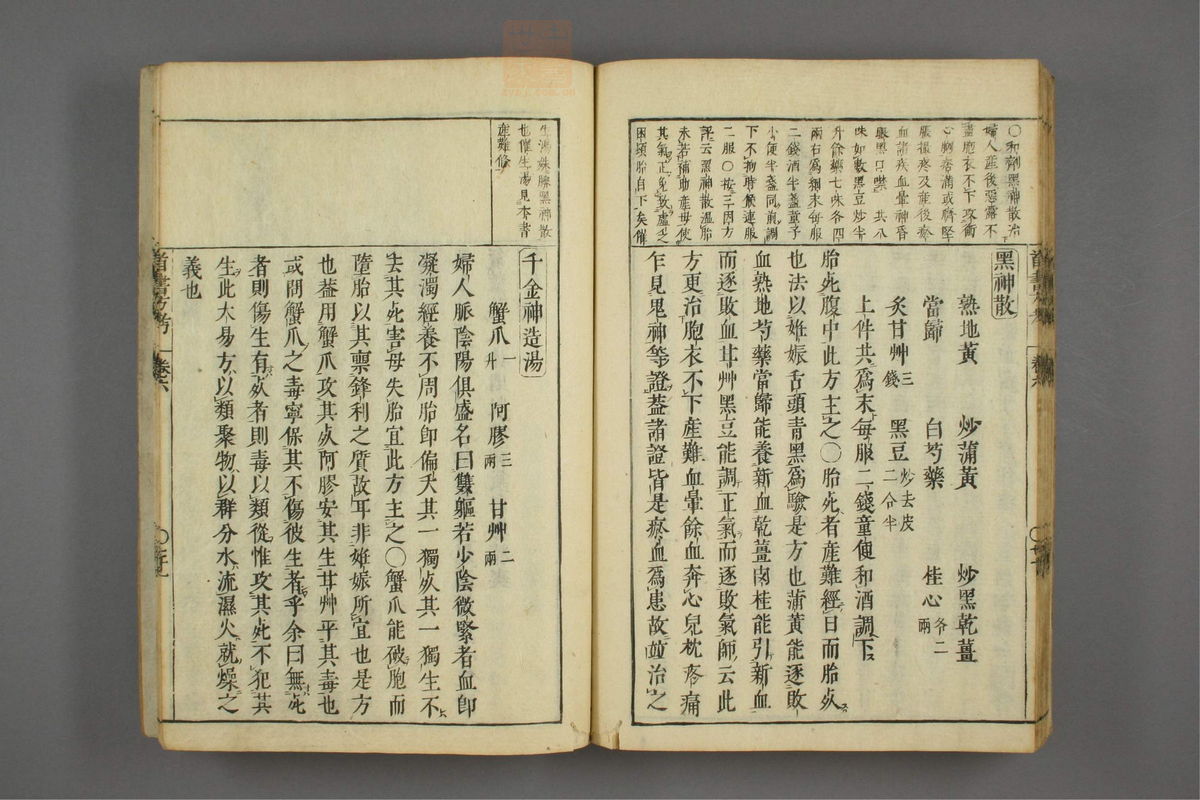 ○和劑黑神散治
婦人産後惡露不
盡胞衣不下攻衝
心胸痞滿或臍堅
脹撮疼及産後瘀
血諸疾血暈神昏
眼黑口噤 共八
味如數黑豆炒半
升餘藥七味各四
兩右爲細末每服
二錢酒半盞童子
小便半盞同煎調
下不拘時候連服
二服○按三因方
評云黑神散溫胎
未若補助産母使
其氣正免致虛乏
困頓胎自下矣催
黑神散
熟地黃 炒蒲黃 炒黑乾薑
當歸 白芍藥 桂心各二兩
炙甘艸三錢 黑豆炒去皮二合半
上件共爲末每服二錢童便和酒調下
胎死腹中此方主之○胎死者産難經日而胎死
也法以姙娠舌頭青黑爲驗是方也蒲黃能逐敗
血熟地芍藥當歸能養新血乾薑肉桂能引新血
而逐敗血甘艸黑豆能調正氣而逐敗氣師云此
方更治胞衣不下産難血暈餘血奔心兒枕疼痛
乍見鬼神等證葢諸證皆是瘀血爲患故竝治之
生湯殊勝黑神散
也催生湯見本書
産難條
千金神造湯
蟹爪一升 阿膠三兩 甘艸二兩
婦人脈陰陽俱盛名曰雙軀若少陰微緊者血卽
凝濁經養不周胎卽偏夭其一獨死其一獨生不
去其死害母失胎宜此方主之○蟹爪能破胞而
墮胎以其稟鋒利之質故耳非姙娠所宜也是方
也葢用蟹爪攻其死阿膠安其生甘艸平其毒也
或問蟹爪之毒寧保其不傷彼生者乎余曰無死
者則傷生有死者則毒以類從惟攻其死不犯其
生此大易方以類聚物以群分水流濕火就燥之
義也